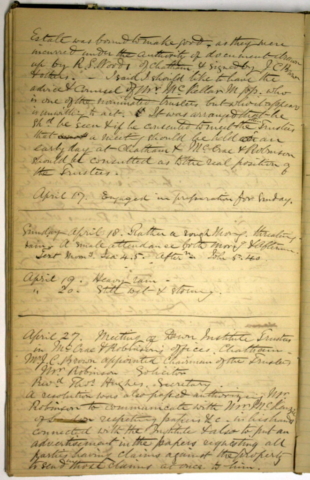 Estate was bound to make good, as they were
incurred under the authority of document drawn
up by R. S. Woods of Chatham & signed by J. C. Brown
& others. I said I should like to have the
advice & counsel of Mr McKellar M.P.P. who
is one of the nominated Trustees but who appears
unwilling to act. It was arranged that he
shd be seen & if he consented to meet the Trustees
that a meeting should be held on an
early day at Chatham & McCrae & Robinson
should be consulted as to the real position of
the Trustees.
April 17. Engaged in preparation for Sunday.
Sunday April 18. Rather a rough Morng. threatening
rain. A small attendance both Morng & Aftern.
Text Morng. Aftern
April 19. Heavy rain.
" 20. Still wet & stormy.
April 27. Meeting of Dawn Institute Trustees
in McCrae & Robinson's offices, Chatham.
Mr J. C. Brown appointed chairman of the Trustees
Mr Robinson Solicitor
Revd Thos. Hughes. Secretary
A resolution was also passed authorizing Mr
Robinson to communicate with Mr
of respecting papers &c. in his hands
connected with the Institute & also to put an
advertisement in the papers requesting all
parties having claims against the property
to send those claims at once to him.